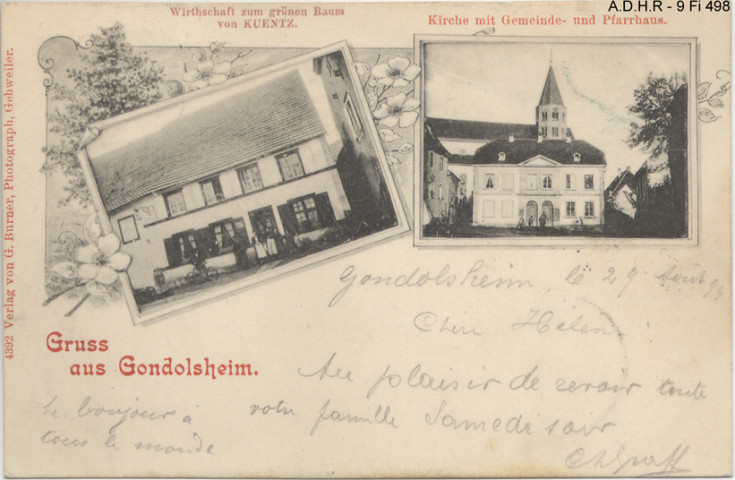 A.D.H.R - 9 Fi 498
Wirthschaft zum grünen Baum
von KUENTZ.
Kirche mit Gemeinde- und Pfarrhaus.
4392 Verlag von G. Burner, Photograph, Gebweiler.
Gruss
aus Gondolsheim.
Gondolsheim, le 29 Août
Chère Hélène
Au plaisir de revoir toute
votre famille Samedi soir
le bonjour à
tous le monde